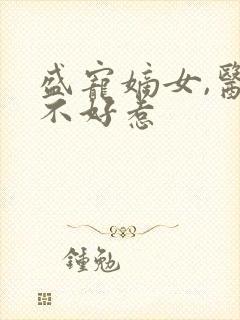 盛寵嫡女,醫
不好惹
鍾勉